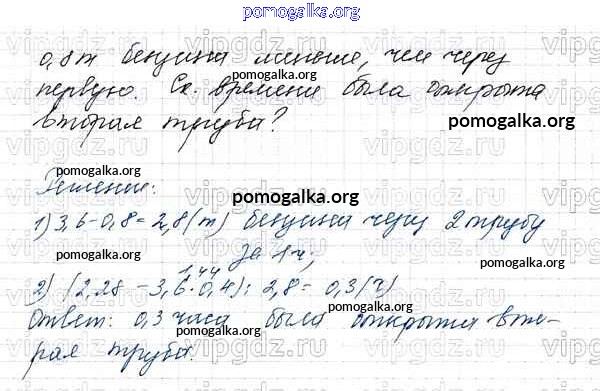 pomogalka.org
0,8 т бензина меньше, чем через
pomogalka.org
первую. Ск. времени была открыта
pomogalka.org
вторая труба?
pomogalka.org
pomogalka.org
Решение:
pomogalka.org
1) 3,6-0,8=2,8(т) бензина через 2 трубу
за 1 ч;
pomogalka.org
pomogalka.org
1,44
2) (2,28-3,6·0,4):2,8=0,3(ч)
Ответ: 0,3 часа была открыта вто-
pomogalka.org
pomogalka.org
рая труба.
pomogalka.org